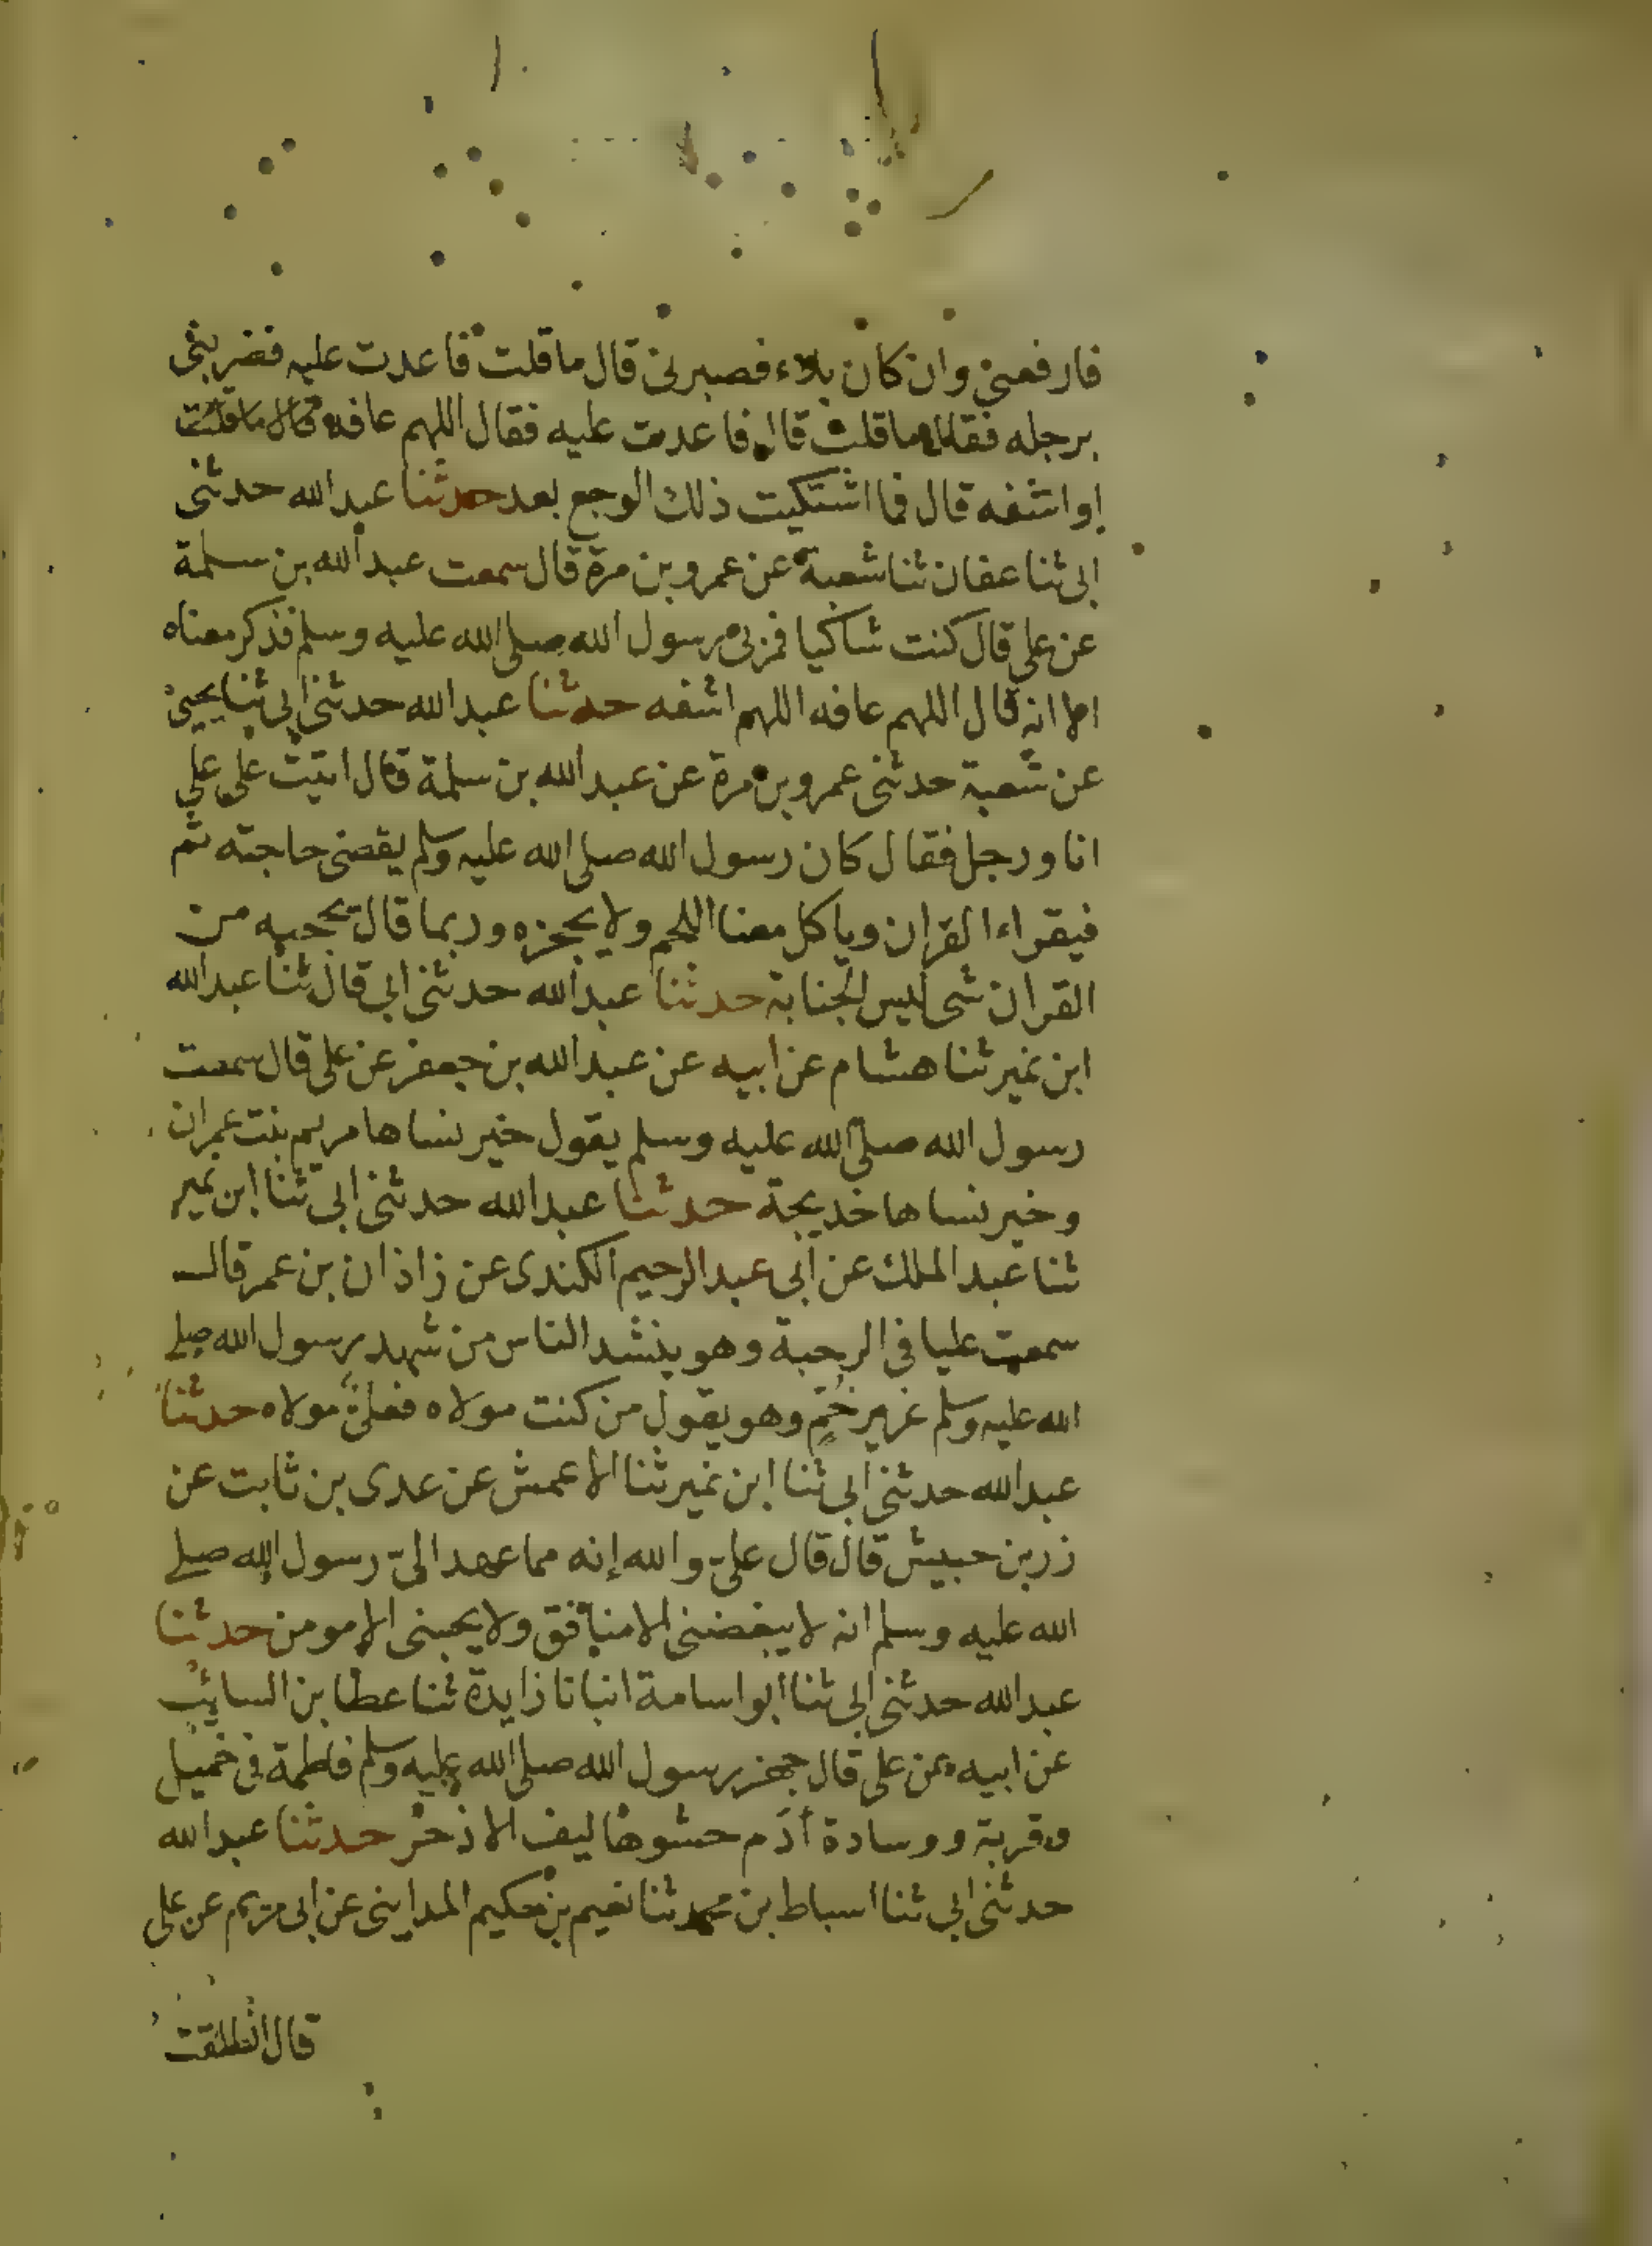 فارفعنى وان كان بلاء فصبرنى قال ما قلت فاعدت عليه فضربنى
برجله فقال ما قلت قال فاعدت عليه فقال اللهم عافه
او اشفه قال فما اشتكيت ذلك الوجع بعد حدثنا عبد الله حدثنى
ابى ثنا عفان ثنا شعبة عن عمرو بن مرة قال سمعت عبد الله بن سلمة
عن على قال كنت شاكيا فمر بى رسول الله صلى الله عليه وسلم فذكر معناه
الا انه قال اللهم عافه اللهم اشفه حدثنا عبد الله حدثنى ابى ثنا يحيى
عن شعبة حدثنى عمرو بن مرة عن عبد الله بن سلمة قال اتيت على على
انا ورجل فقال كان رسول الله صلى الله عليه وسلم يقضى حاجته ثم
فيقراء القران وياكل معنا اللحم ولا يحجزه وربما قال يحجبه من
القران شى ليس الجنابة حدثنا عبد الله حدثنى ابى قال ثنا عبد الله
ابن نمير ثنا هشام عن ابيه عن عبد الله بن جعفر عن على قال سمعت
رسول الله صلى الله عليه وسلم يقول خير نساها مريم بنت عمران
وخير نساها خديجة حدثنا عبد الله حدثنى ابى ثنا ابن نمير
ثنا عبد الملك عن ابى عبد الرحيم الكندى عن زاذان بن عمر قال
سمعت عليا فى الرحبة وهو ينشد الناس من شهد رسول الله صلى
الله عليه وسلم غدير خُمٍّ وهو يقول من كنت مولاه فعلىٌّ مولاه حدثنا
عبد الله حدثنى ابى ثنا ابن نمير ثنا الاعمش عن عدى بن ثابت عن
زر بن حبيش قال قال علىّ والله إنه مما عهد الىّ رسول الله صلى
الله عليه وسلم انه لا يبغضنى الا منافق ولا يحبنى الا مومن حدثنا
عبد الله حدثنى ابى ثنا ابو اسامة انبانا زايدة ثنا عطا بن السائب
عن ابيه عن على قال جهز رسول الله صلى الله عليه وسلم فاطمة فى خميل
وقربة ووسادة أدَم حشوها ليف الاذخر حدثنا عبد الله
حدثنى ابى ثنا اسباط بن محمد ثنا نعيم بن حكيم المداينى عن ابى مريم عن على
قال انطلقت